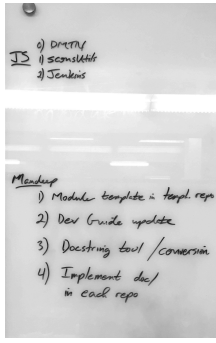 0) DMTN
JS 1) sconsUtils
2) Jenkins
Mandeep
1) Module template in templ. repo
2) Dev Guide update
3) Docstring tool / conversion
4) Implement doc/
in each repo